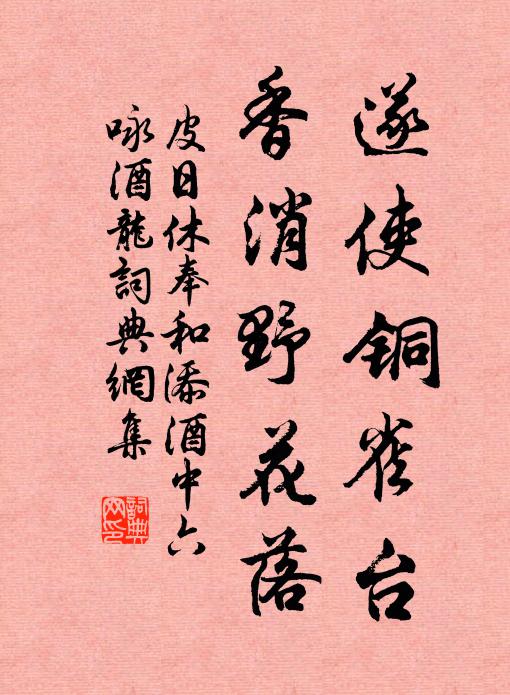 遂使铜雀台
香消野花落
皮日休奉和添酒中六
咏酒龍詞典網集
詞典網印